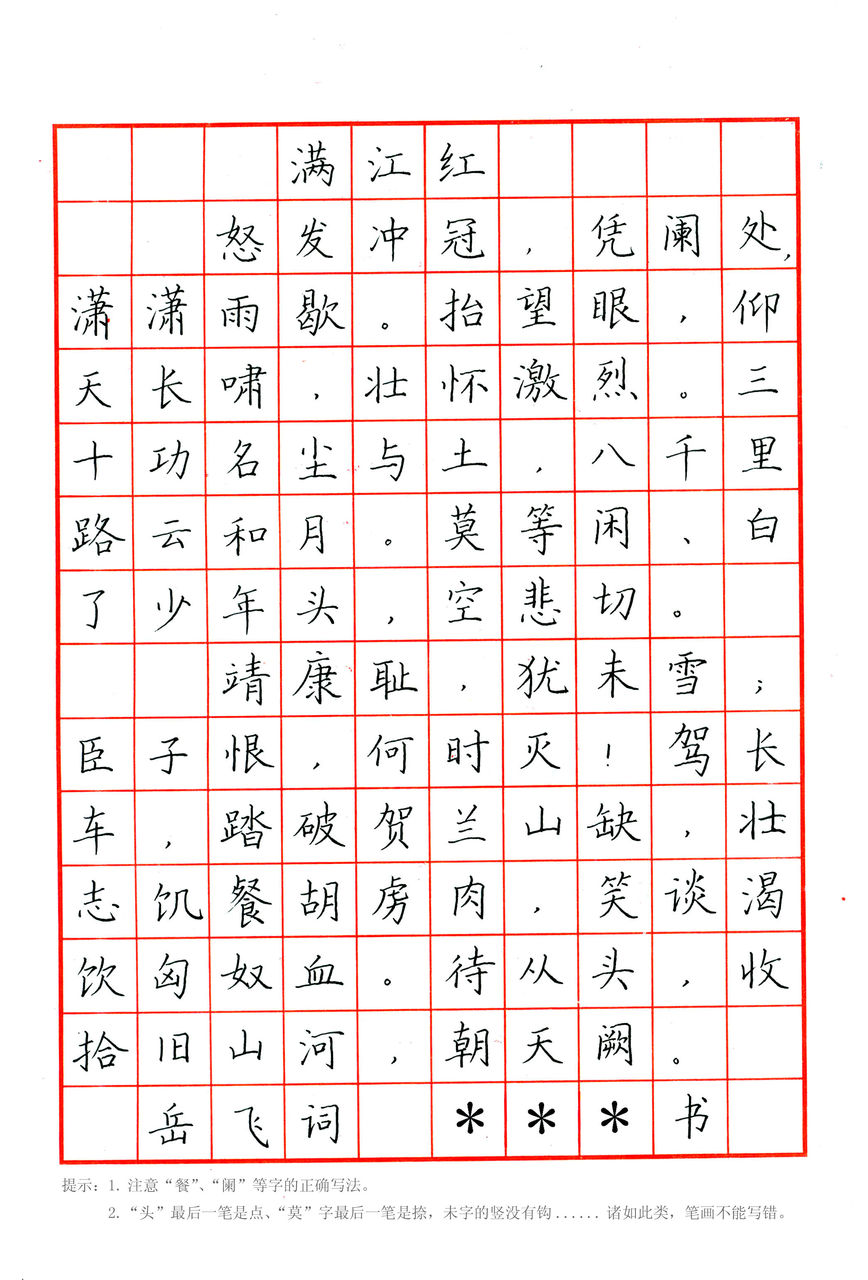 满江红
怒发冲冠，凭阑处，
潇潇雨歇。抬望眼，仰
天长啸，壮怀激烈。三
十功名尘与土，八千里
路云和月。莫等闲、白
了少年头，空悲切。
靖康耻，犹未雪；
臣子恨，何时灭！驾长
车，踏破贺兰山缺，壮
志饥餐胡虏肉，笑谈渴
饮匈奴血。待从头，收
拾旧山河，朝天阙。
岳飞词 ＊＊＊书
提示：1. 注意“餐”、“阑”等字的正确写法。
2. “头”最后一笔是点、“莫”字最后一笔是捺，未字的竖没有钩......诸如此类，笔画不能写错。